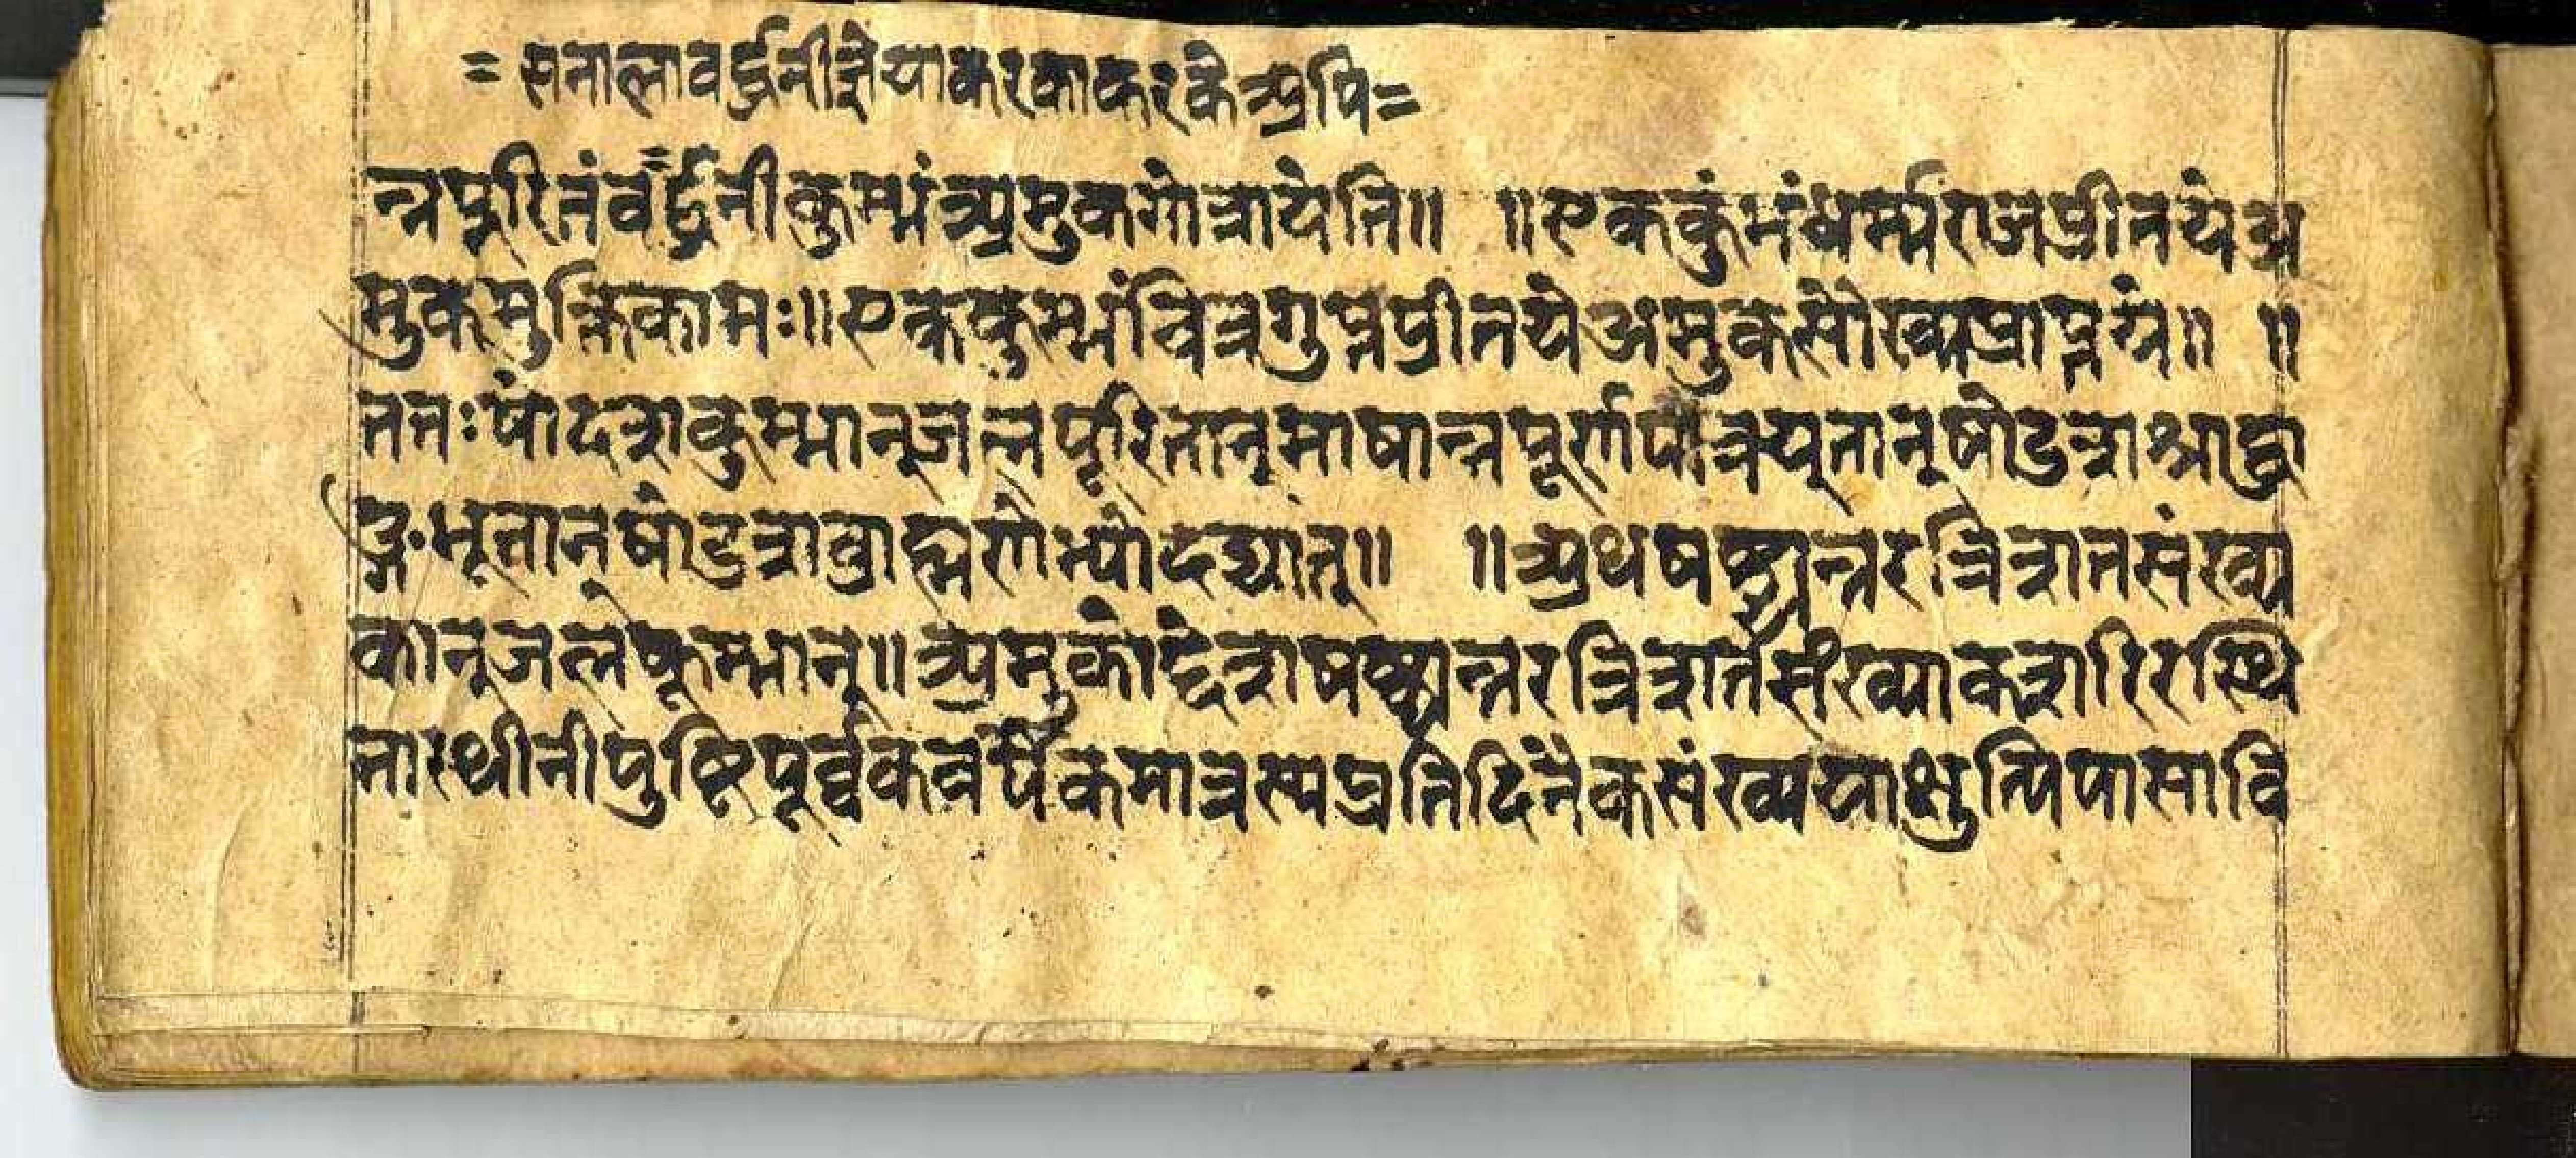 = सनालावर्द्धनीज्ञेयाकरकाकरकेअपि=
न्नपूरितंवर्द्धनीकुम्भंअमुकगोत्रायेति॥ ॥एककुंभंधर्म्मराजप्रीतयेअ
मुकमुक्तिकामः॥एककुम्भंचित्रगुप्तप्रीतयेअमुकसौख्यप्राप्तये॥ ॥
ततःषोदशकुम्भान्जलपूरितान्माषान्नपूर्णपात्रयुतान्षोडशश्राद्धा
ङ्गभूतान्षोडशब्राह्मणेभ्योदद्यात्॥ ॥अथषष्ट्युत्तरत्रिशतसंख्य
कान्जलकुम्भान्॥अमुकोद्देशषष्ट्युत्तरत्रिशतसंख्याकशरिरस्थि
नास्थीनीपुष्टिपूर्व्वकवर्षैकमात्रस्यप्रतिदिनैकसंख्ययाक्षुत्पिपासावि